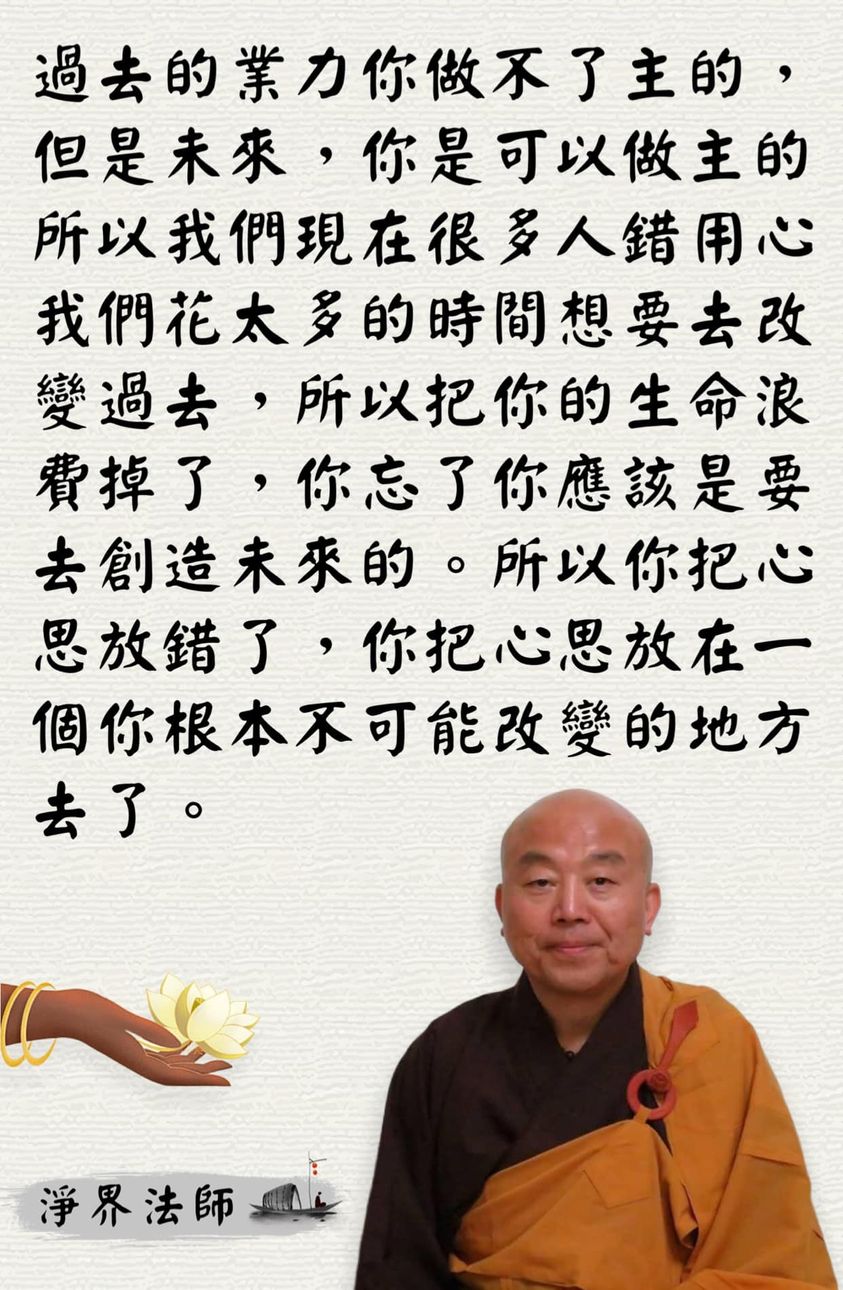 過去的業力你做不了主的，
但是未來，你是可以做主的
所以我們現在很多人錯用心
我們花太多的時間想要去改
變過去，所以把你的生命浪
費掉了，你忘了你應該是要
去創造未來的。所以你把心
思放錯了，你把心思放在一
個你根本不可能改變的地方
去了。
淨界法師